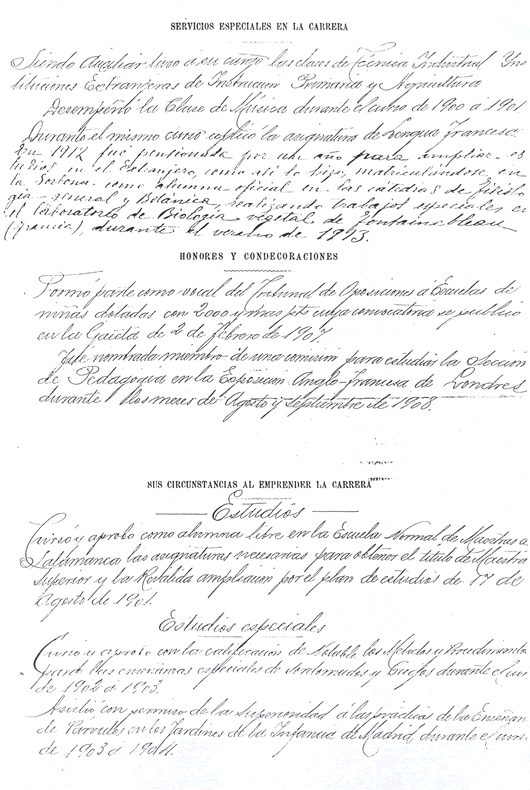 SERVICIOS ESPECIALES EN LA CARRERA
Siendo Auxiliar tuvo a su cargo las clases de Técnica Industrial Ins
tituciones Extranjeras de Instrucción Primaria y Agricultura
Desempeñó la Clase de Música durante el curso de 1900 á 1901
Durante el mismo curso explicó la asignatura de Lengua Francesa
En 1912 fué pensionada por un año para ampliar es
tudios en el Extranjero, como así lo hizo, matriculándose en
la Sorbona como alumna oficial en las cátedras de fisiolo
gía general y Botánica, realizando trabajos especiales en
el laboratorio de Biología vegetal de Fontainebleau
(Francia), durante el verano de 1913.
HONORES Y CONDECORACIONES
Formó parte como vocal del Tribunal de Oposiciones á Escuelas de
niñas dotadas con 2000 y más pts cuya convocatoria se publicó
en la Gaceta de 2 de Febrero de 1907.
Fué nombrada miembro de una comisión para estudiar la Sección
de Pedagogía en la Exposición Anglo-Francesa de Londres
durante los meses de Agosto y septiembre de 1908.
SUS CIRCUNSTANCIAS AL EMPRENDER LA CARRERA
Estudios
Cursó y aprobó como alumna libre en la Escuela Normal de Maestras de
Salamanca las asignaturas necesarias para obtener el título de Maestra
Superior y la Reválida ampliación por el plan de estudios de 17 de
Agosto de 1901.
Estudios especiales
Cursó y aprobó con la calificación de Notable los Métodos y Procedimientos
para las enseñanzas especiales de Sordomudos y Ciegos durante el curso
de 1902 á 1903.
Asistió con permiso de la Superioridad á las prácticas de la Enseñan
de Párvulos en los Jardines de la Infancia de Madrid durante el curso
de 1903 á 1904.